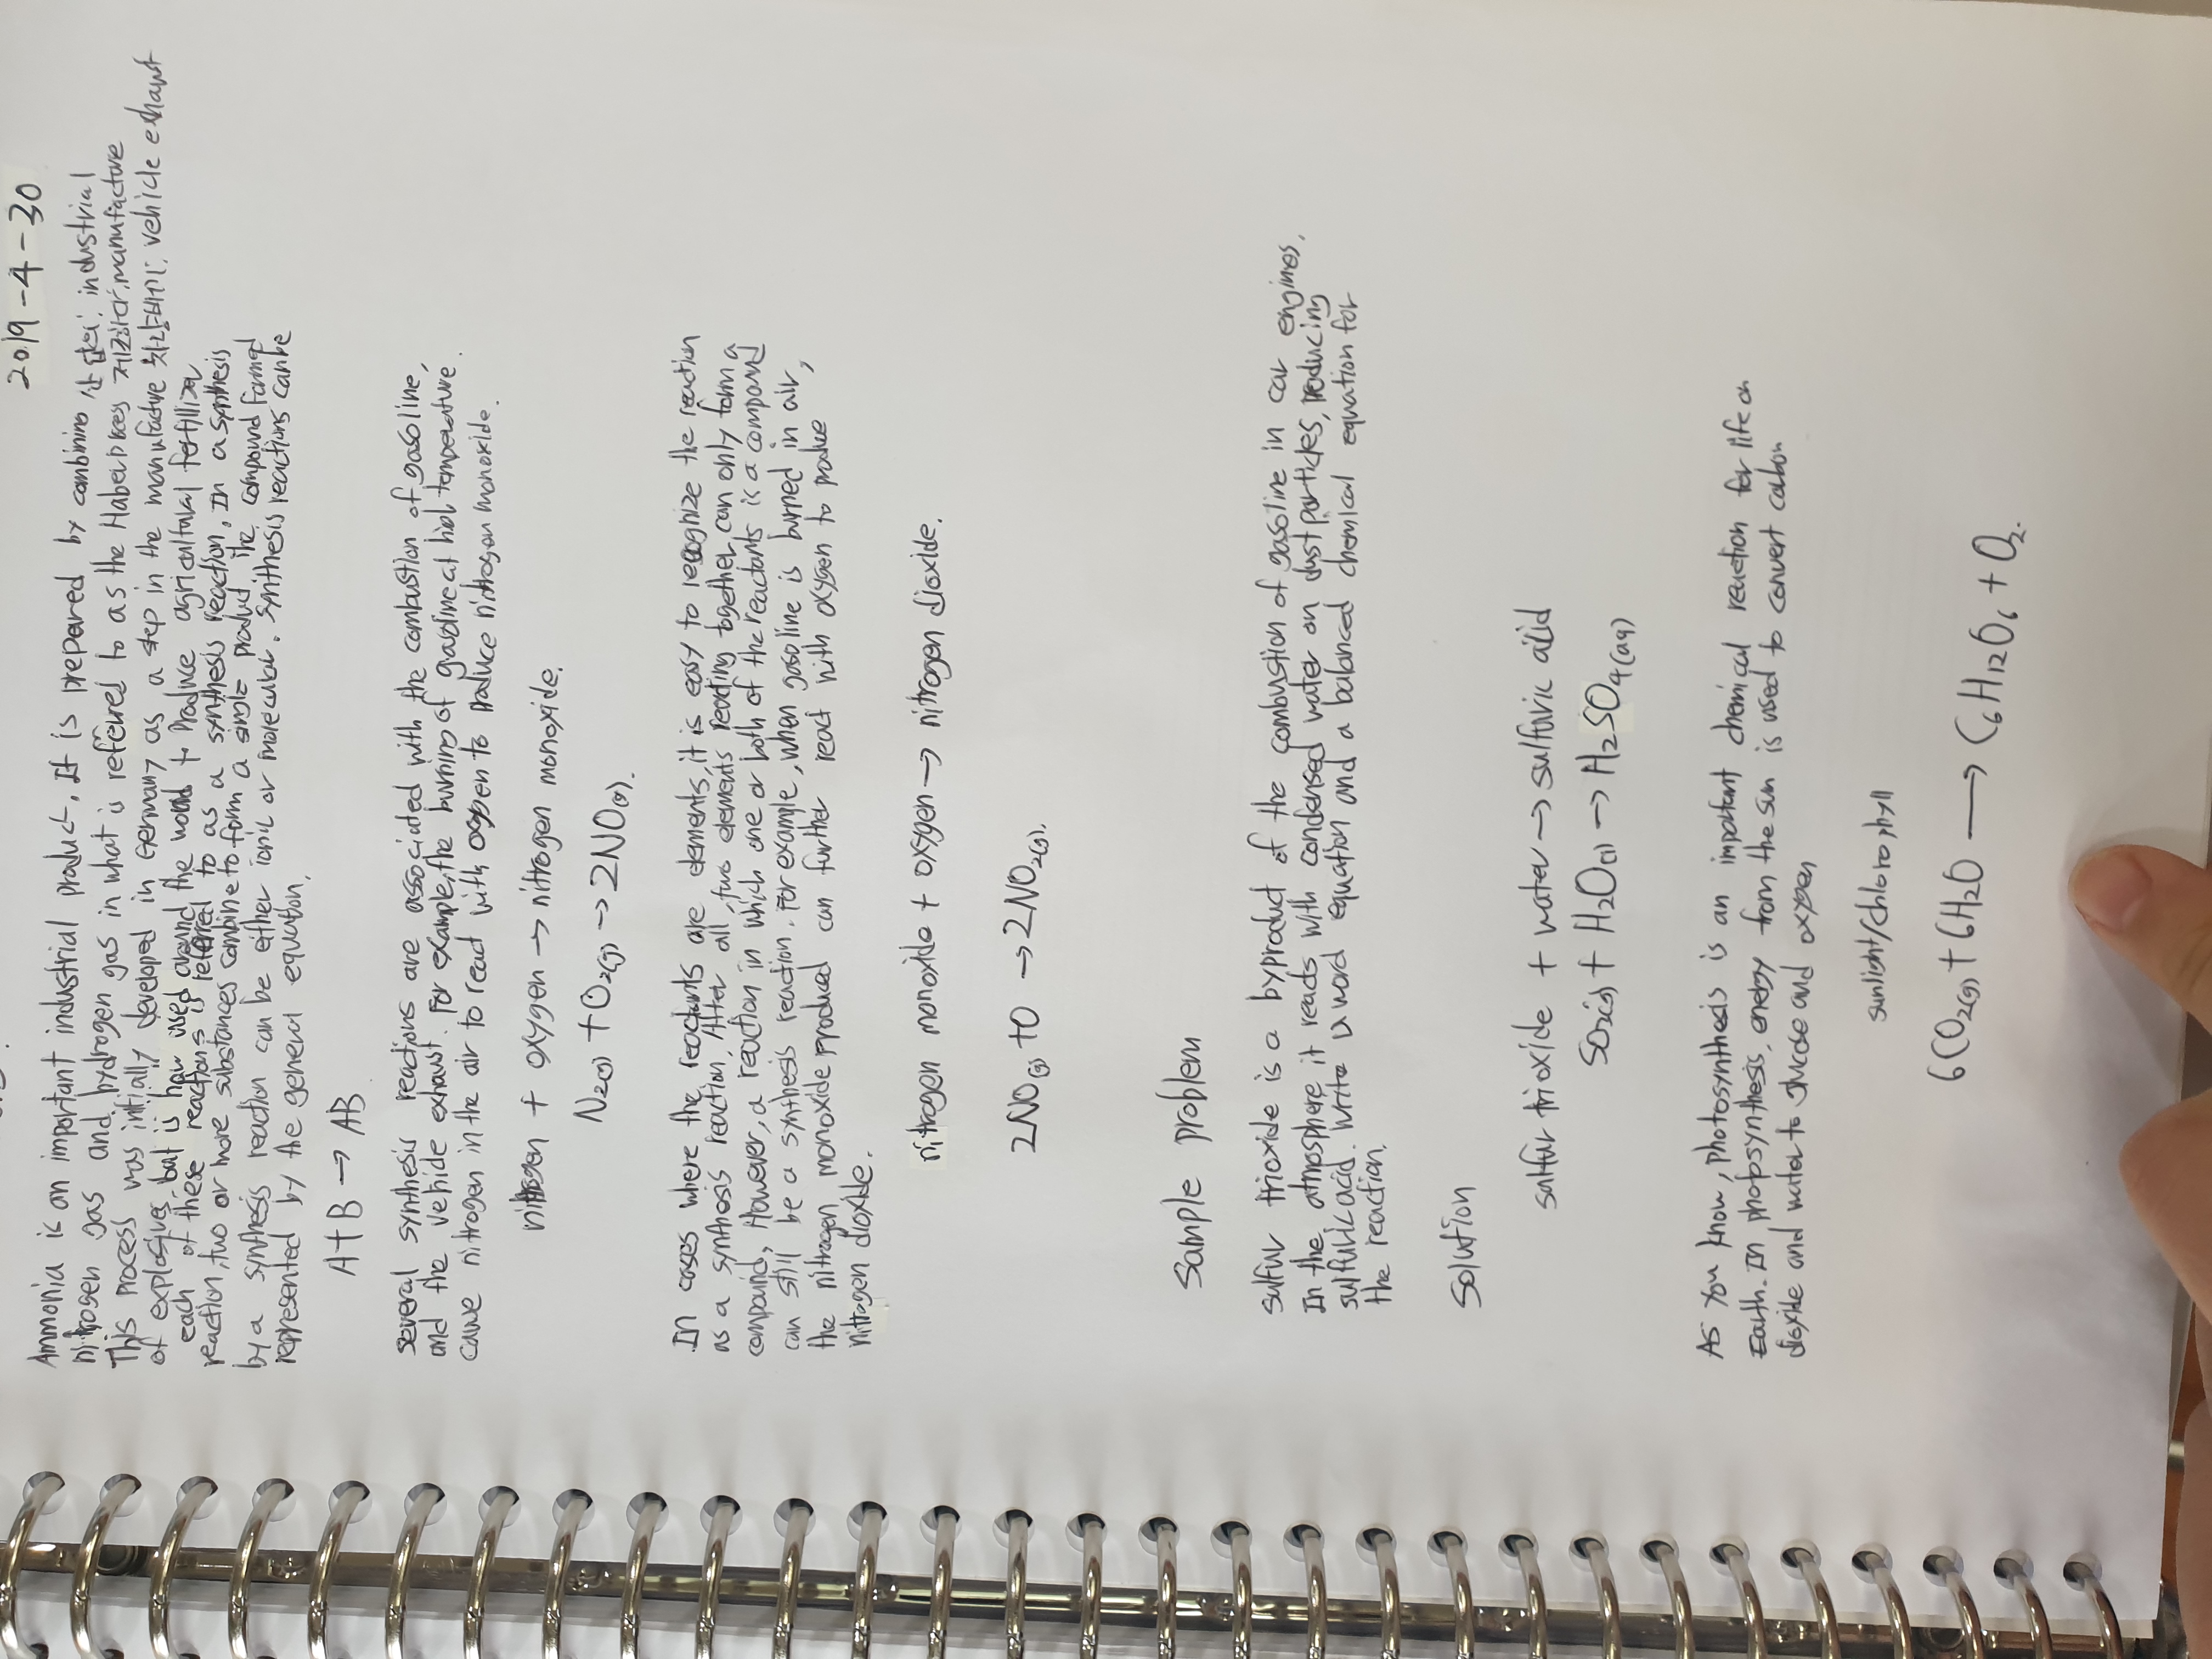 2019-4-30
Ammonia is an important industrial product. It is prepared by combining 산업의; industrial
nitrogen gas and hydrogen gas in what is refered to as the Haber process 제조하다; manufacture
This process was initially developed in Germany as a step in the manufacture 차량배기; vehicle exhaust
of explosives, but is now used around the world t produce agricultural fertilizer
each of these reactions is referred to as a synthesis reaction. In a synthesis
reaction, two or more substances combine to form a single product. The compound formed
by a synthesis reaction can be either ionic or molecular. Synthesis reactions can be
represented by the general equation,
A+B → AB
Several synthesis reactions are associated with the combustion of gasoline,
and the vehicle exhaust. For example, the burning of gasoline at high temperature.
cause nitrogen in the air to react with oxygen to produce nitrogen monoxide.
nitrogen + oxygen → nitrogen monoxide.
N2(g) + O2(g) → 2NO(g).
In cases where the reactants are elements, it is easy to recognize the reaction
as a synthesis reaction. After all, two elements reacting together can only form a
compound, However, a reaction in which one or both of the reactants is a compound
can still be a synthesis reaction. For example, when gasoline is burned in air,
the nitrogen monoxide produced can further react with oxygen to produce
nitrogen dioxide.
nitrogen monoxide + oxygen → nitrogen dioxide.
2NO(g) + O → 2NO2(g).
Sample problem
sulfur trioxide is a byproduct of the combustion of gasoline in car engines,
In the atmosphere it reacts with condensed water on dust particles, producing
sulfuric acid. Write a word equation and a balanced chemical equation for
the reaction.
Solution
sulfur trioxide + water → sulfuric acid
SO3(g) + H2O(l) → H2SO4(aq)
As you know, photosynthesis is an important chemical reaction for life on
Earth. In photosynthesis, energy from the sun is used to convert carbon
dioxide and water to glucose and oxygen
sunlight/chlorophyll
6CO2(g) + 6H2O → C6H12O6 + O2.